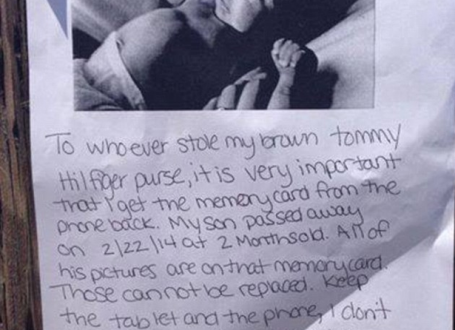 To whoever stole my brown tommy
Hilfiger purse, it is very important
that I get the memory card from the
phone back. My son passed away
on 2/22/14 at 2 Months old. All of
his pictures are on that memory card.
Those cannot be replaced. Keep
the tablet and the phone, I don't